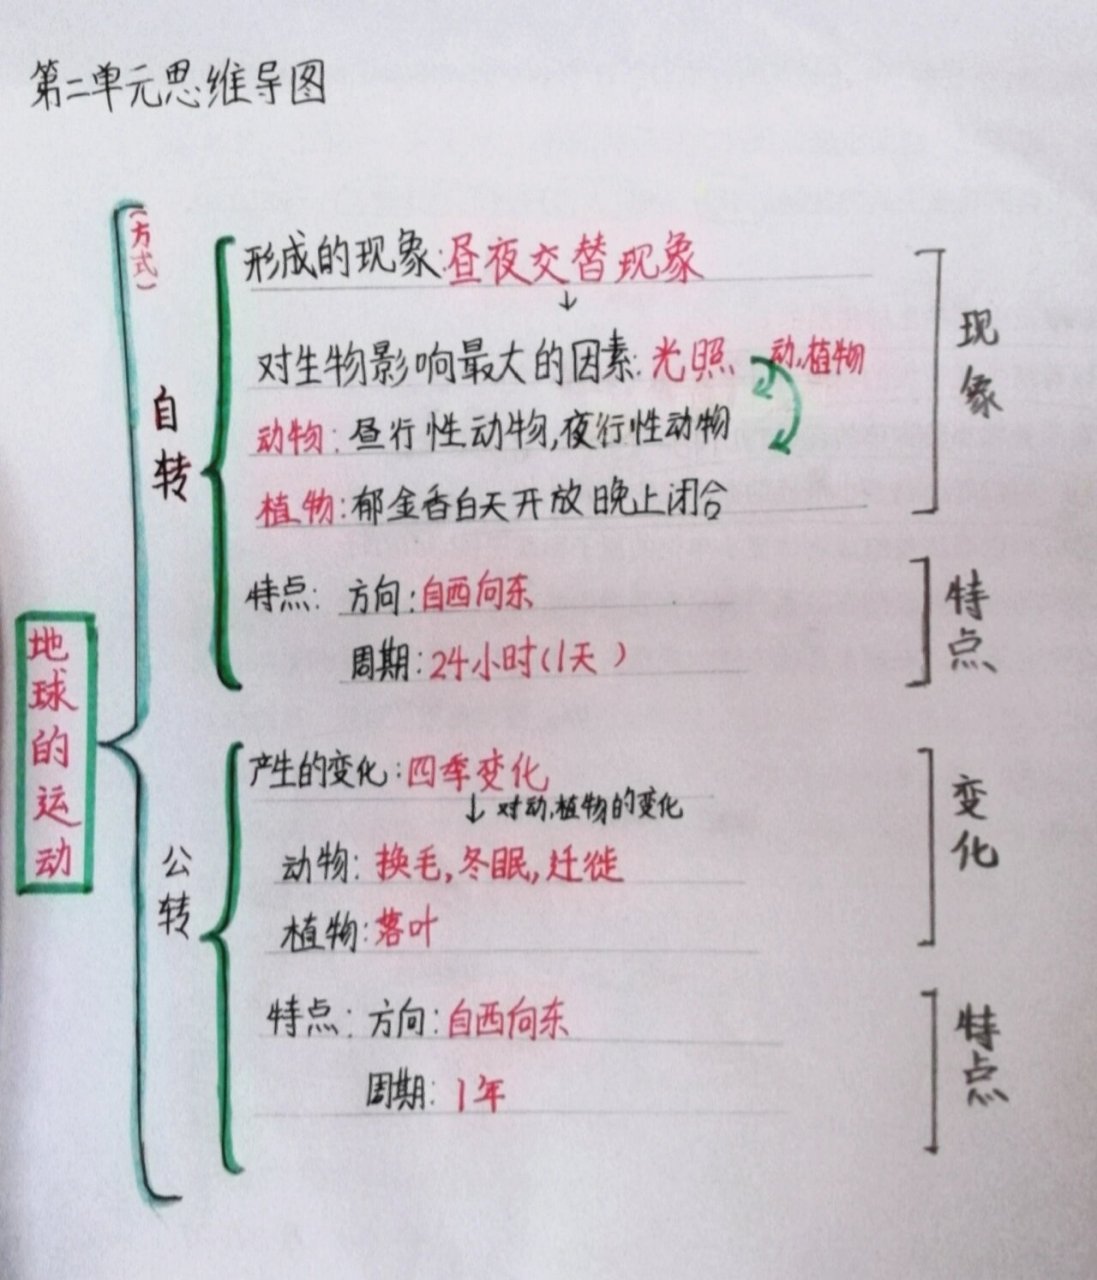 第二单元思维导图
地球的运动
(方式)
自转
形成的现象:昼夜交替现象
↓
对生物影响最大的因素:光照 动,植物
动物:昼行性动物,夜行性动物
植物:郁金香白天开放晚上闭合
现象
特点: 方向:自西向东
周期:24小时(1天)
特点
公转
产生的变化:四季变化
↓对动,植物的变化
动物:换毛,冬眠,迁徙
植物:落叶
变化
特点: 方向:自西向东
周期: 1年
特点